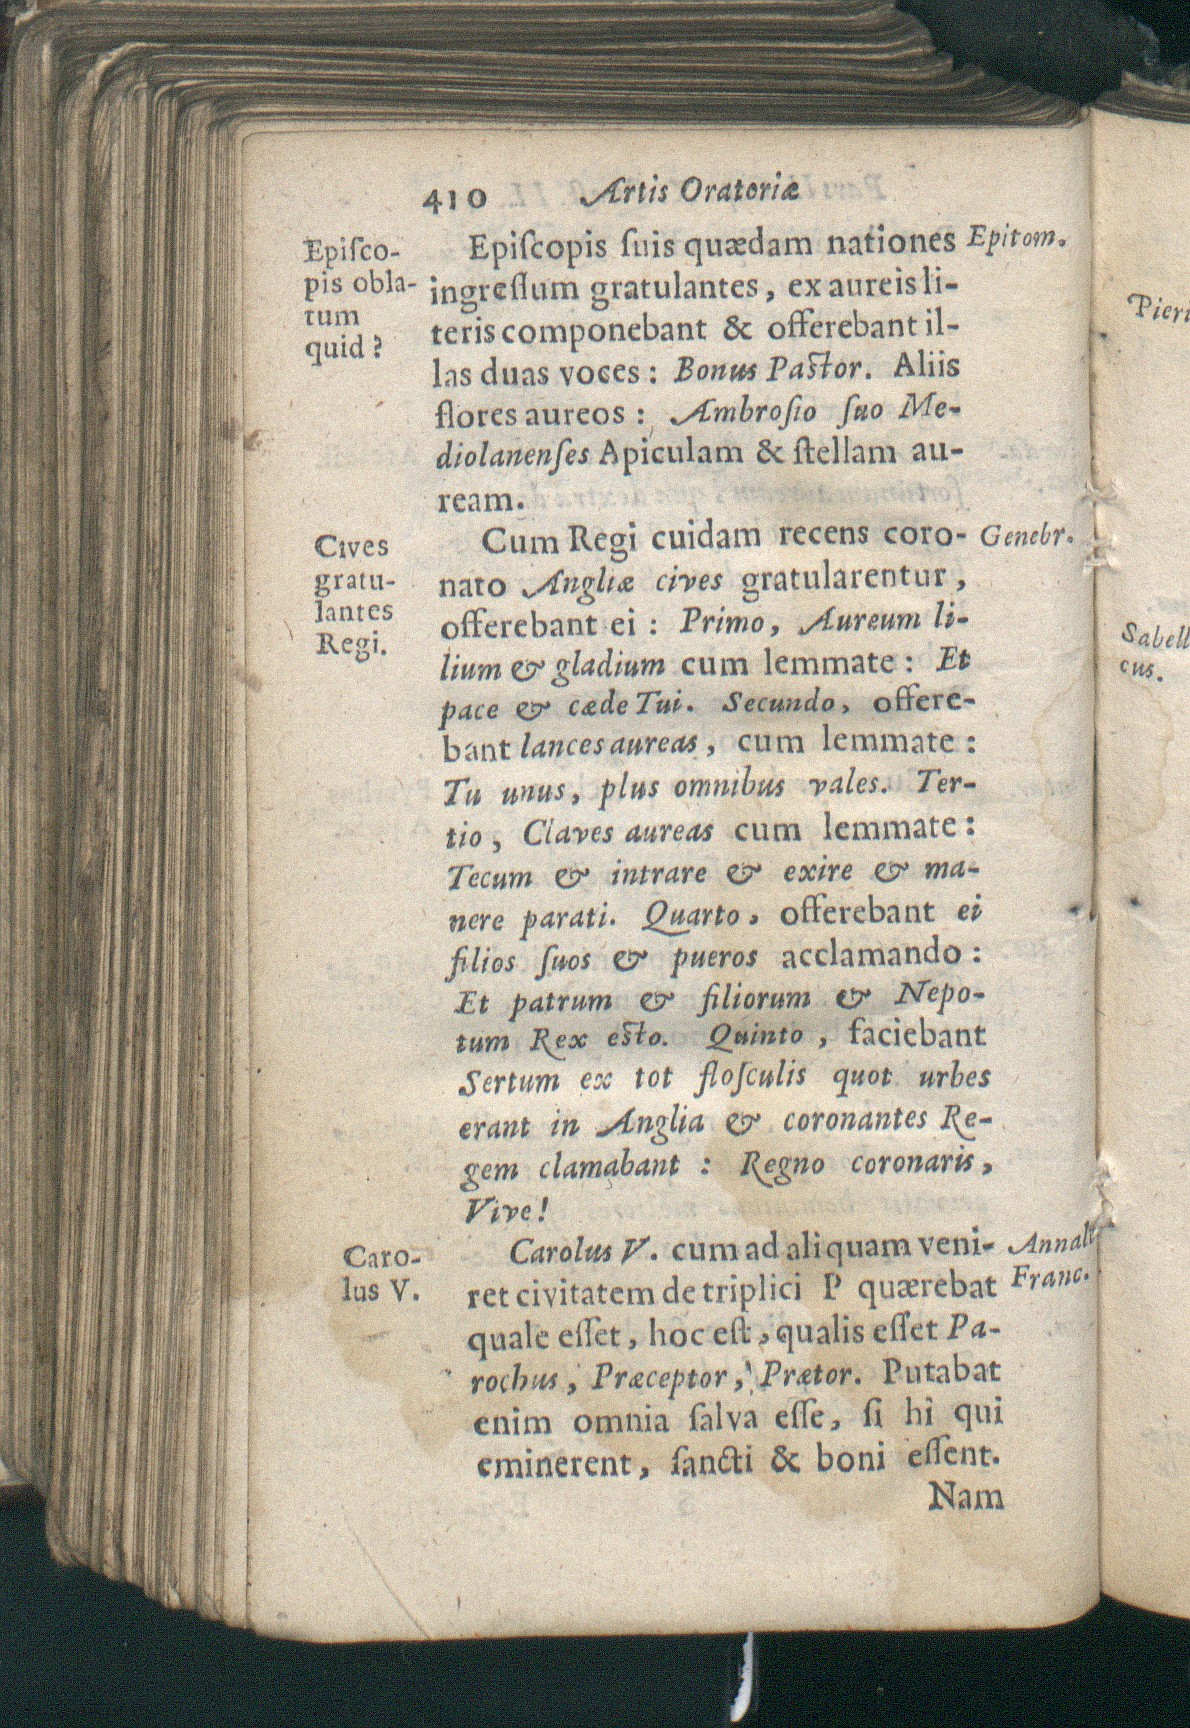 410 Artis Oratoriæ
Episcopis suis quædam nationes Epitom.
Episco-
pis obla-
tum
quid?
ingressum gratulantes, ex aureis li-
teris componebant & offerebant il-
las duas voces: Bonus Pastor. Aliis
flores aureos: Ambrosio suo Me-
diolanenses Apiculam & stellam au-
ream.
Cum Regi cuidam recens coro- Genebr.
Cives
gratu-
lantes
Regi.
nato Angliæ cives gratularentur,
offerebant ei: Primo, Aureum li-
lium & gladium cum lemmate: Et
pace & cæde Tui. Secundo, offere-
bant lances aureas, cum lemmate:
Tu unus, plus omnibus vales. Ter-
tio, Claves aureas cum lemmate:
Tecum & intrare & exire & ma-
nere parati. Quarto, offerebant ei
filios suos & pueros acclamando:
Et patrum & filiorum & Nepo-
tum Rex esto. Quinto, faciebant
Sertum ex tot flosculis quot urbes
erant in Anglia & coronantes Re-
gem clamabant: Regno coronaris,
Vive!
Caro-
lus V.
Carolus V. cum ad aliquam veni- Annal.
ret civitatem de triplici P quærebat Franc.
quale esset, hoc est, qualis esset Pa-
rochus, Præceptor, Prætor. Putabat
enim omnia salva esse, si hi qui
eminerent, sancti & boni essent.
Nam
Pieri
Sabell
cus.